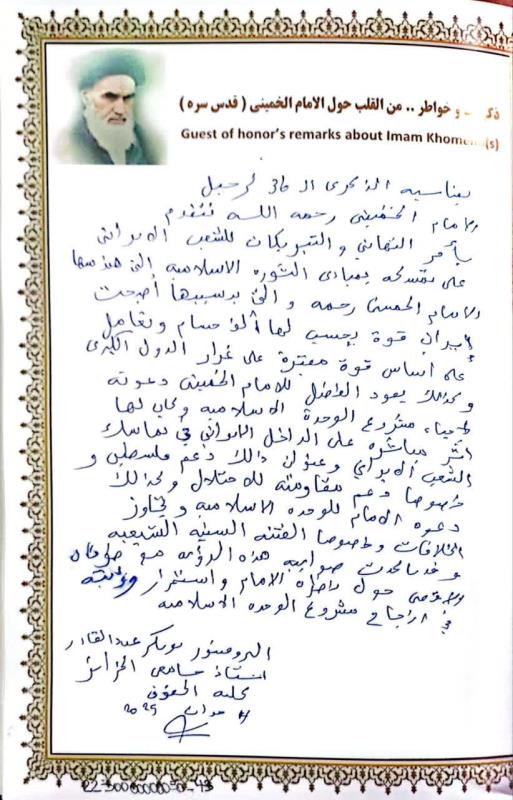 و خواطر .. من القلب حول الامام الخميني ( قدس سره )
Guest of honor's remarks about Imam Khomeini(s)
بمناسبة الذكرى الـ 36 لرحيل
الامام الخميني رحمه الله نتقدم
بأحر التهاني والتبريكات للشعب الايراني
على تمسكه بمبادئ الثورة الاسلامية التي
الامام الخميني رحمه والتي بسببها أصبحت
إيران قوة يحسب لها ألف حساب وتعامل
على أساس قوة معتبرة على غرار الدول الكبرى
وكذلك يعود الفضل للامام الخميني دعوته
مشروع الوحدة الاسلامية وكان لها
أثر مباشر على الداخل الايراني في تماسك
الشعب الايراني وعنوان ذالك دعم فلسطين و
خصوصا دعم مقاومته للاحتلال وكذالك
دعوة الامام للوحدة الاسلامية وتجاوز
الخلافات وخصوصا الفتنة السنية الشيعية
هذه الرؤية مع طوفان
حول الامام واستمرار
في مشروع الوحدة الاسلامية
البروفيسور بوبكر عبد القادر
استاذ جامعي الجزائر
كلية الحقوق
2025